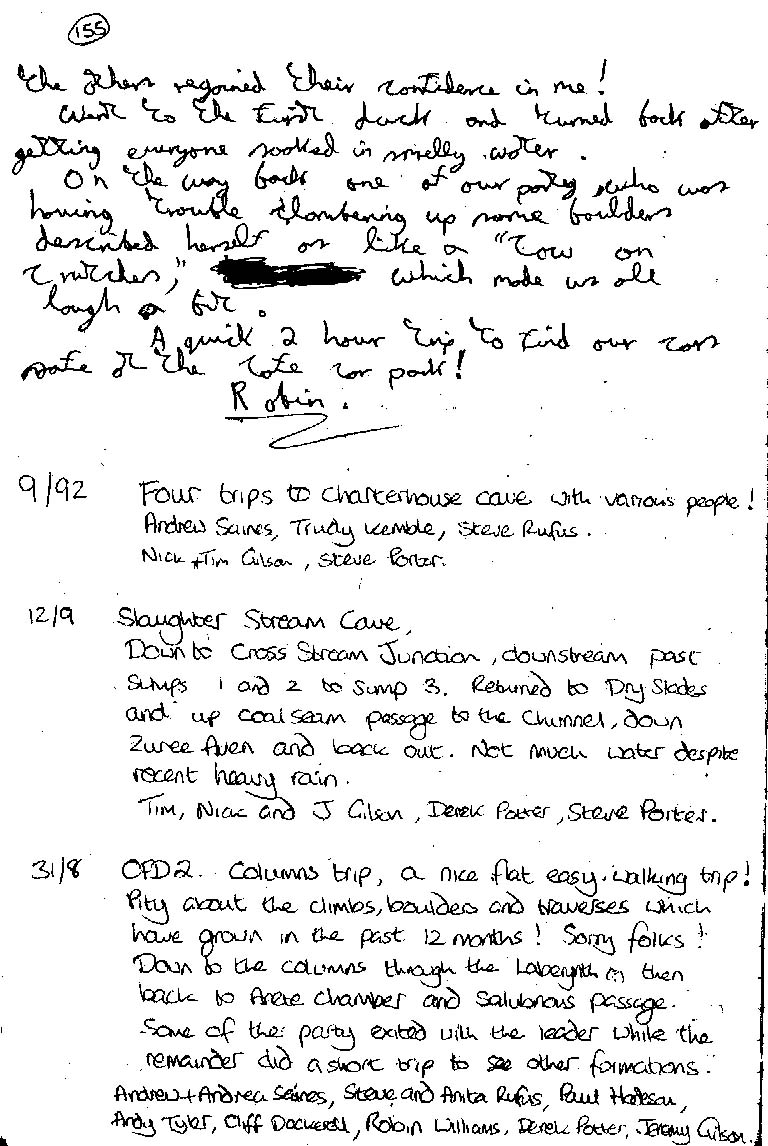 155
the others regained their confidence in me!
Went to the first duck and turned back after
getting everyone soaked in smelly water.
On the way back one of our party who was
having trouble clambering up some boulders
described herself as like a "cow on
crutches," which made us all
laugh a bit.
A quick 2 hour trip to find our cars
safe at the cafe car park!
Robin.
9/92 Four trips to Charterhouse cave with various people!
Andrew Saines, Trudy Kemble, Steve Rufus.
Nick + Tim Gilson, Steve Porter.
12/9 Slaughter Stream Cave,
Down to Cross Stream Junction, downstream past
Sumps 1 and 2 to Sump 3. Returned to Dry Slades
and up coal seam passage to the Chunnel, down
Zuree Aven and back out. Not much water despite
recent heavy rain.
Tim, Nick and J Gilson, Derek Potter, Steve Porter.
31/8 OFD2. Columns trip, a nice flat easy walking trip!
Pity about the climbs, boulders and traverses which
have grown in the past 12 months! Sorry folks!
Down to the columns through the Laberynth then
back to Arete chamber and Salubrious passage.
Some of the party exited with the leader while the
remainder did a short trip to see other formations.
Andrew + Andrea Saines, Steve and Anita Rufus, Paul
Andy Tyler, Cliff Dockerell, Robin Williams, Derek Potter, Jeremy Gilson.